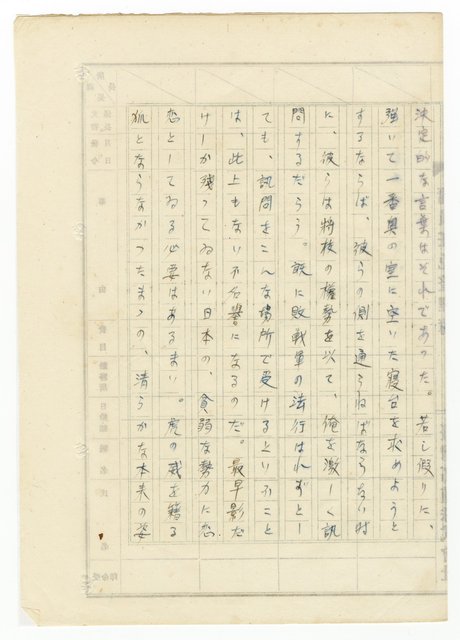 決定的な言葉はそれであった。若し仮りに、
強いて一番奥の室に空いた寝台を求めようと
するならば、彼らの側を通らねばならない時
に、彼らは将校の権勢を以て、俺を激しく訊
問するだらう。既に敗戦軍の法行はれずとし
ても、訊問をこんな場所で受けるといふこと
は、此上もない不名誉になるのだ。最早影だ
けしか残ってゐない日本の、貧弱な勢力に恋
恋としてゐる必要はあるまい。虎の威を籍る
狐とならなかったまゝの、清らかな本来の姿